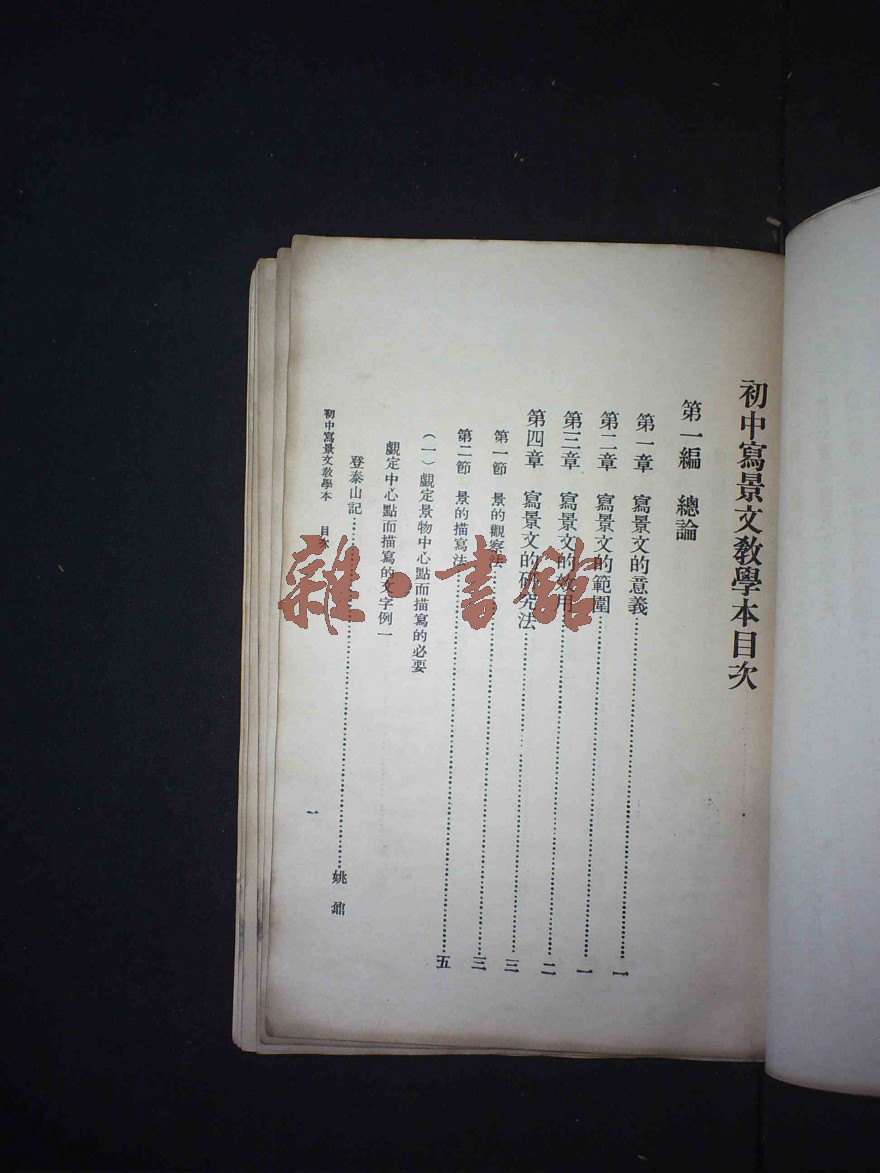 初中寫景文教學本目次
第一編 總論
第一章 寫景文的意義……一
第二章 寫景文的範圍……一
第三章 寫景文的效用……二
第四章 寫景文的研究法……三
第一節 景的觀察法……三
第二節 景的描寫法……五
(一)覷定景物中心點而描寫的必要
覷定中心點而描寫的文字例一
登泰山記……姚鼐
初中寫景文教學本 目次 一
雜·書館